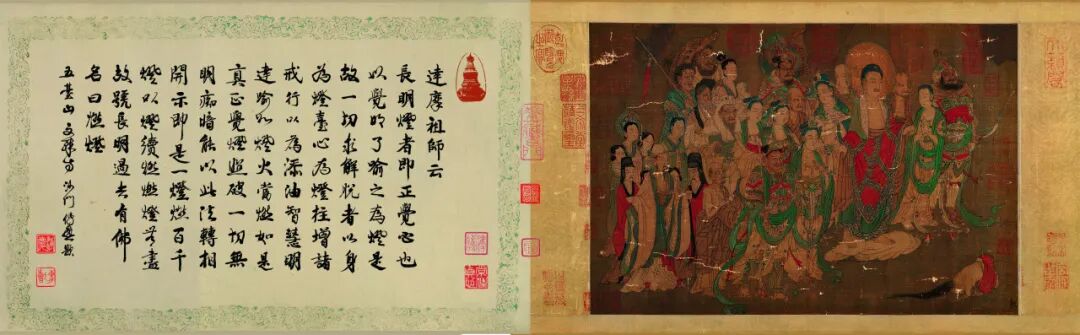 達摩祖師云
長明燈者即正覺心也
以覺明了喻之為燈是
故一切求解脫者以身
為燈臺心為燈柱增諸
戒行以為添油智慧明
達喻如燈火當燃如是
真正覺燈照破一切無
明痴暗能以此法轉相
開示即是一燈燃百千
燈以燈續燃燃燈無盡
故號長明過去有佛
名曰燃燈
五臺山 沙門